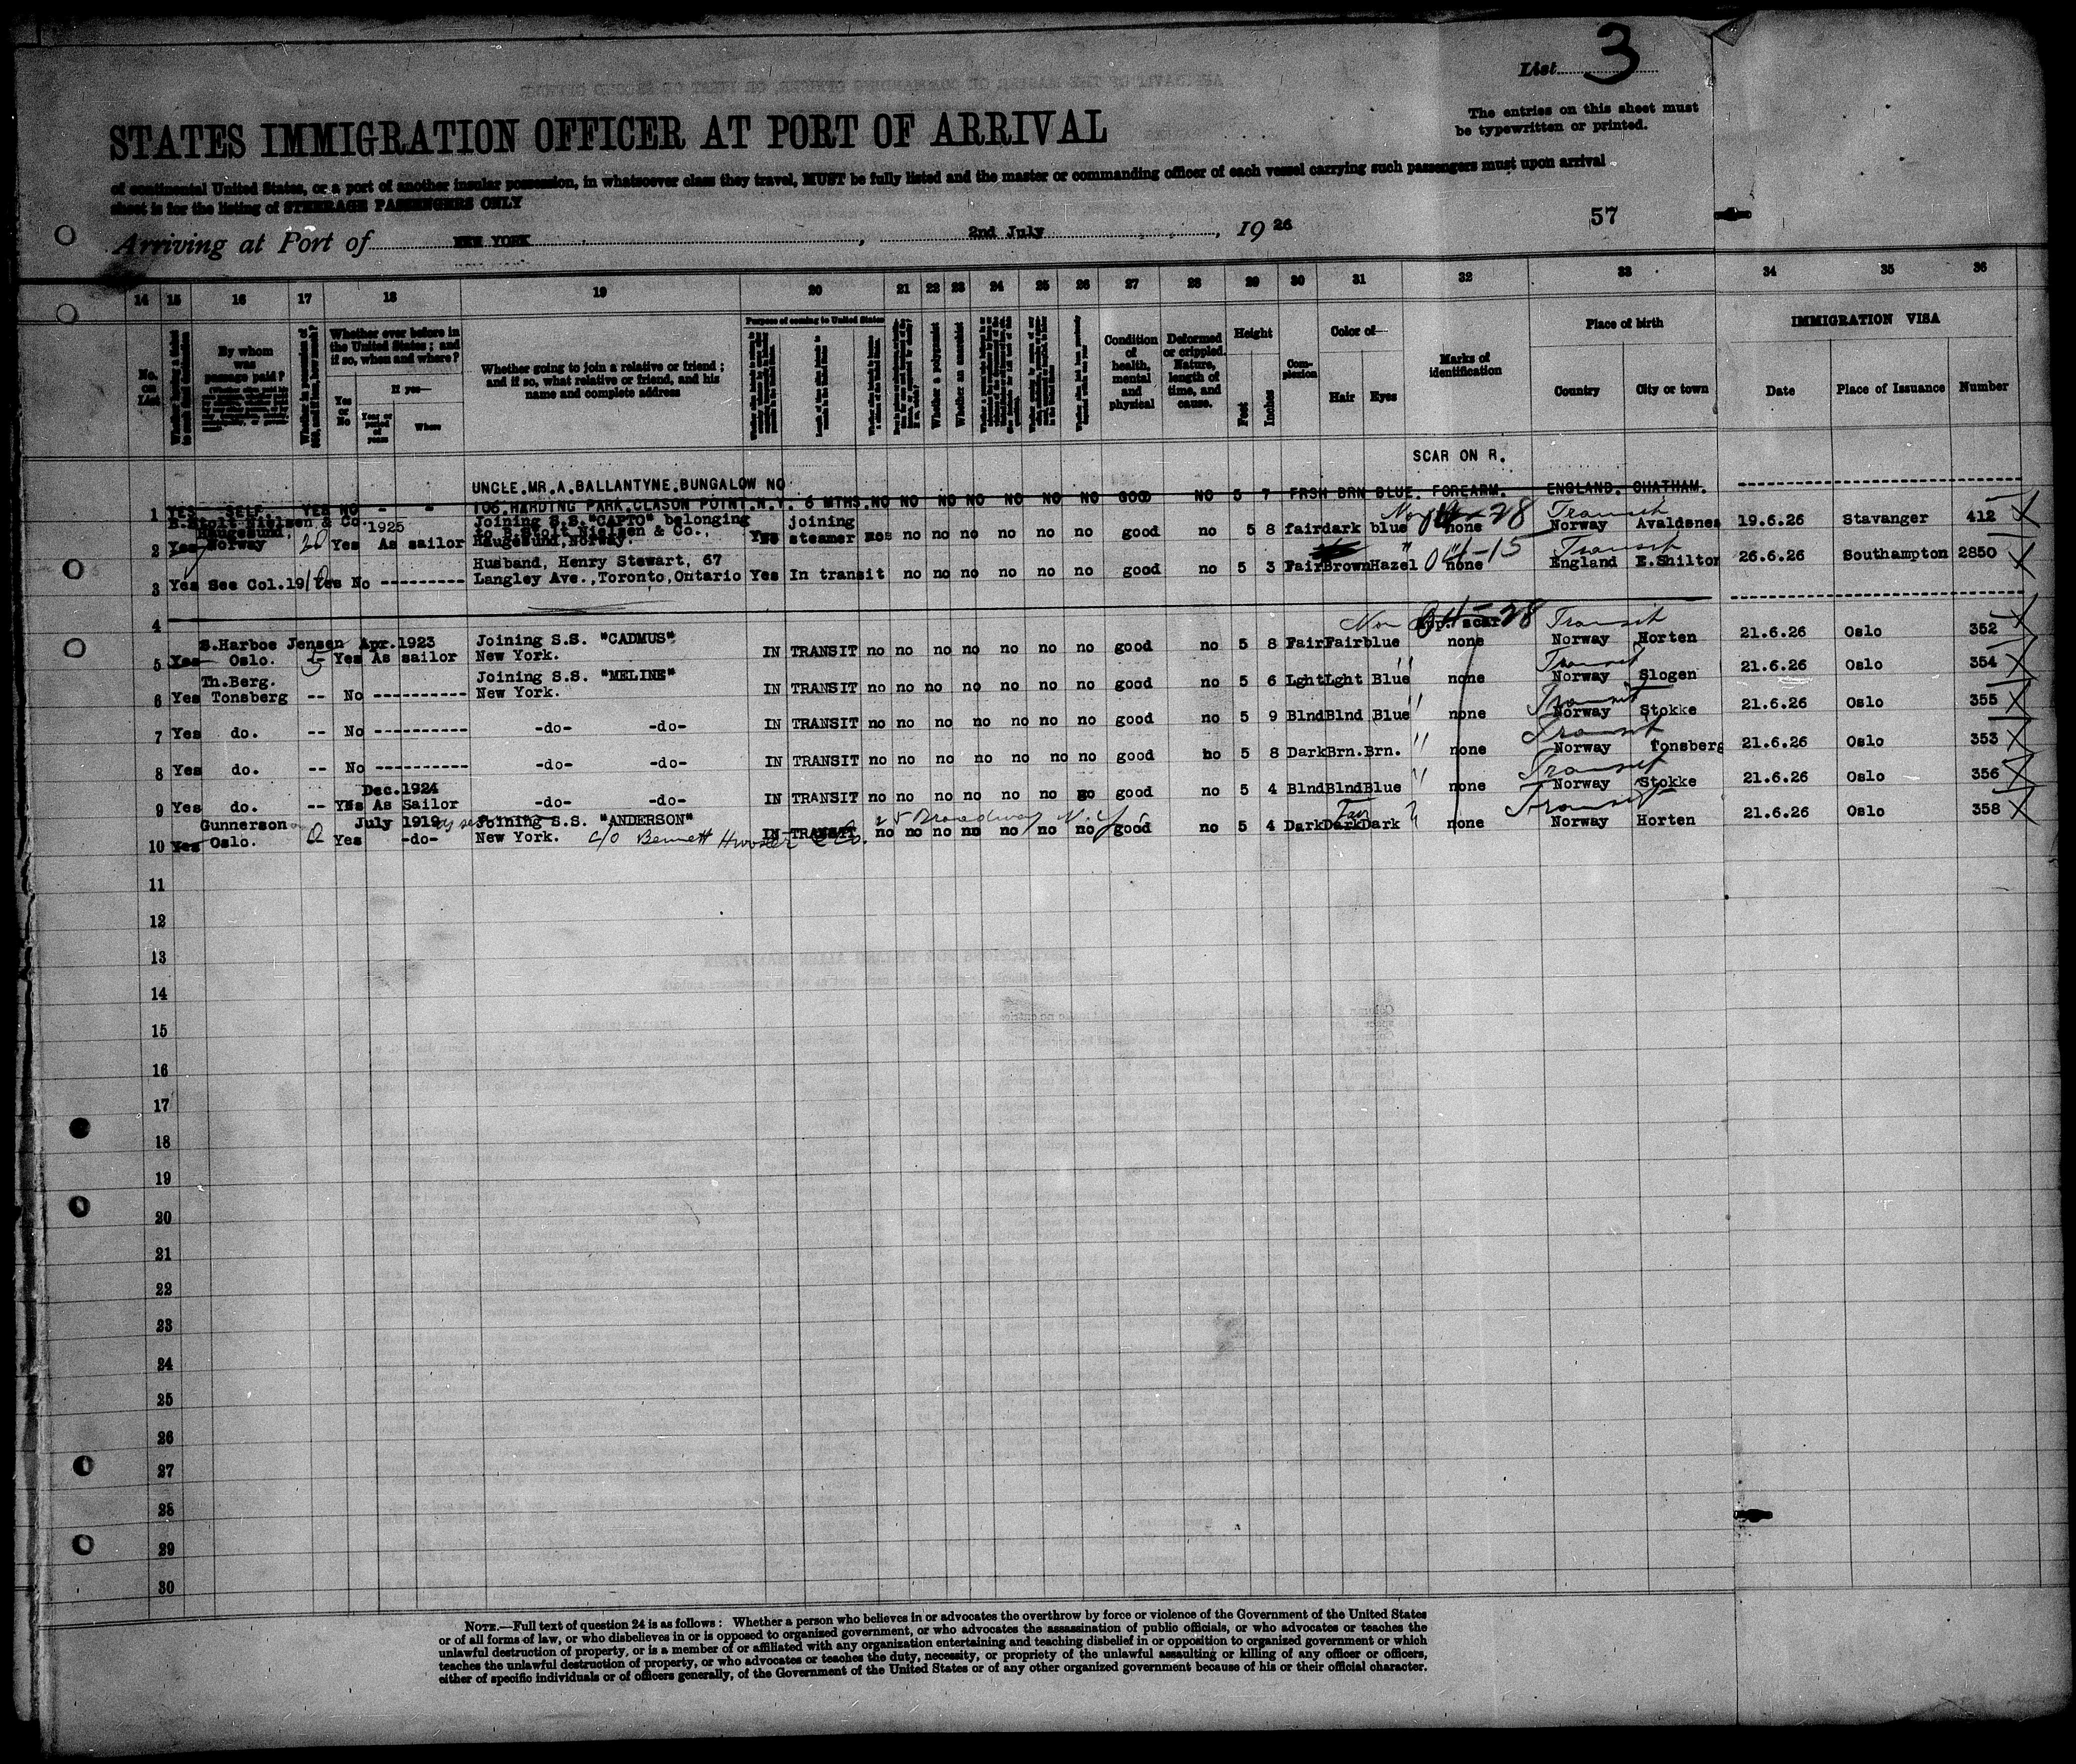 List 3
The entries on this sheet must
be typewritten or printed.
STATES IMMIGRATION OFFICER AT PORT OF ARRIVAL
of continental United States, or a port of another insular possession, in whatsoever class they travel, MUST be fully listed and the master or commanding officer of each vessel carrying such passengers must upon arrival
sheet is for the listing of STEERAGE PASSENGERS ONLY
57
Arriving at Port of NEW YORK, 2nd July, 1926
14 15 16 17 18 19 20 21 22 23 24 25 26 27 28 29 30 31 32 33 34 35 36
No. on List
By whom was passage paid?
Whether ever before in the United States; and if so, when and where?
Yes or No
If yes—
Where
Whether going to join a relative or friend; and if so, what relative or friend, and his name and complete address
Purpose of coming to United States
Whether a polygamist
Whether an anarchist
Condition of health, mental and physical
Deformed or crippled. Nature, length of time, and cause.
Height
Feet Inches
Complexion
Color of—
Hair Eyes
Marks of identification
Place of birth
Country City or town
IMMIGRATION VISA
Date Place of Issuance Number
SCAR ON R.
UNCLE.MR.A.BALLANTYNE.BUNGALOW NO
1 YES SELF. YES NO - - 106.HARDING PARK.CLASON POINT.N.Y. 6 MTHS.NO NO NO NO NO NO NO GOOD NO 5 7 FRSH BRN BLUE. FOREARM. ENGLAND. CHATHAM.
B.Stolt-Nielsen & Co. 1925 Joining S.S."CAPTO" belonging joining Transit
Haugesund, to B.Stolt Nielsen & Co.,
2 Yes Norway 20 Yes As sailor Haugesund, Norway. Yes steamer no no no no no no good no 5 8 fair dark blue none Norway Avaldsnes 19.6.26 Stavanger 412
Husband, Henry Stewart, 67 Transit
3 Yes See Col.19 Yes No ---------- Langley Ave.,Toronto,Ontario Yes In transit no no no no no no good no 5 3 Fair Brown Hazel none England E.Shilton 26.6.26 Southampton 2850
4
S.Harboe Jensen Apr.1923 Joining S.S. "CADMUS" Transit
5 Yes Oslo. 5 Yes As sailor New York. IN TRANSIT no no no no no no no good no 5 8 Fair Fair blue none Norway Horten 21.6.26 Oslo 352
Th.Berg. Joining S.S. "MELINE" Transit
6 Yes Tonsberg -- No ---------- New York. IN TRANSIT no no no no no no no good no 5 6 Lght Lght Blue " none Norway Slogen 21.6.26 Oslo 354
Transit
7 Yes do. -- No ---------- -do- -do- IN TRANSIT no no no no no no no good no 5 9 Blnd Blnd Blue " none Norway Stokke 21.6.26 Oslo 355
Transit
8 Yes do. -- No ---------- -do- -do- IN TRANSIT no no no no no no no good no 5 8 Dark Brn. Brn. " none Norway Tonsberg 21.6.26 Oslo 353
Dec.1924 Transit
9 Yes do. -- Yes As Sailor -do- -do- IN TRANSIT no no no no no no no good no 5 4 Blnd Blnd Blue " none Norway Stokke 21.6.26 Oslo 356
Gunnerson July 1919 Joining S.S. "ANDERSON" 25 Broadway N.Y. Transit
10 Yes Oslo. 0 Yes -do- New York. c/o Bennett IN TRANSIT no no no no no no no good no 5 4 Dark Dark Dark none Norway Horten 21.6.26 Oslo 358
11
12
13
14
15
16
17
18
19
20
21
22
23
24
25
26
27
28
29
30
NOTE.—Full text of question 24 is as follows: Whether a person who believes in or advocates the overthrow by force or violence of the Government of the United States
or of all forms of law, or who disbelieves in or is opposed to organized government, or who advocates the assassination of public officials, or who advocates or teaches the
unlawful destruction of property, or is a member of or affiliated with any organization entertaining and teaching disbelief in or opposition to organized government or which
teaches the unlawful destruction of property, or who advocates or teaches the duty, necessity, or propriety of the unlawful assaulting or killing of any officer or officers,
either of specific individuals or of officers generally, of the Government of the United States or of any other organized government because of his or their official character.